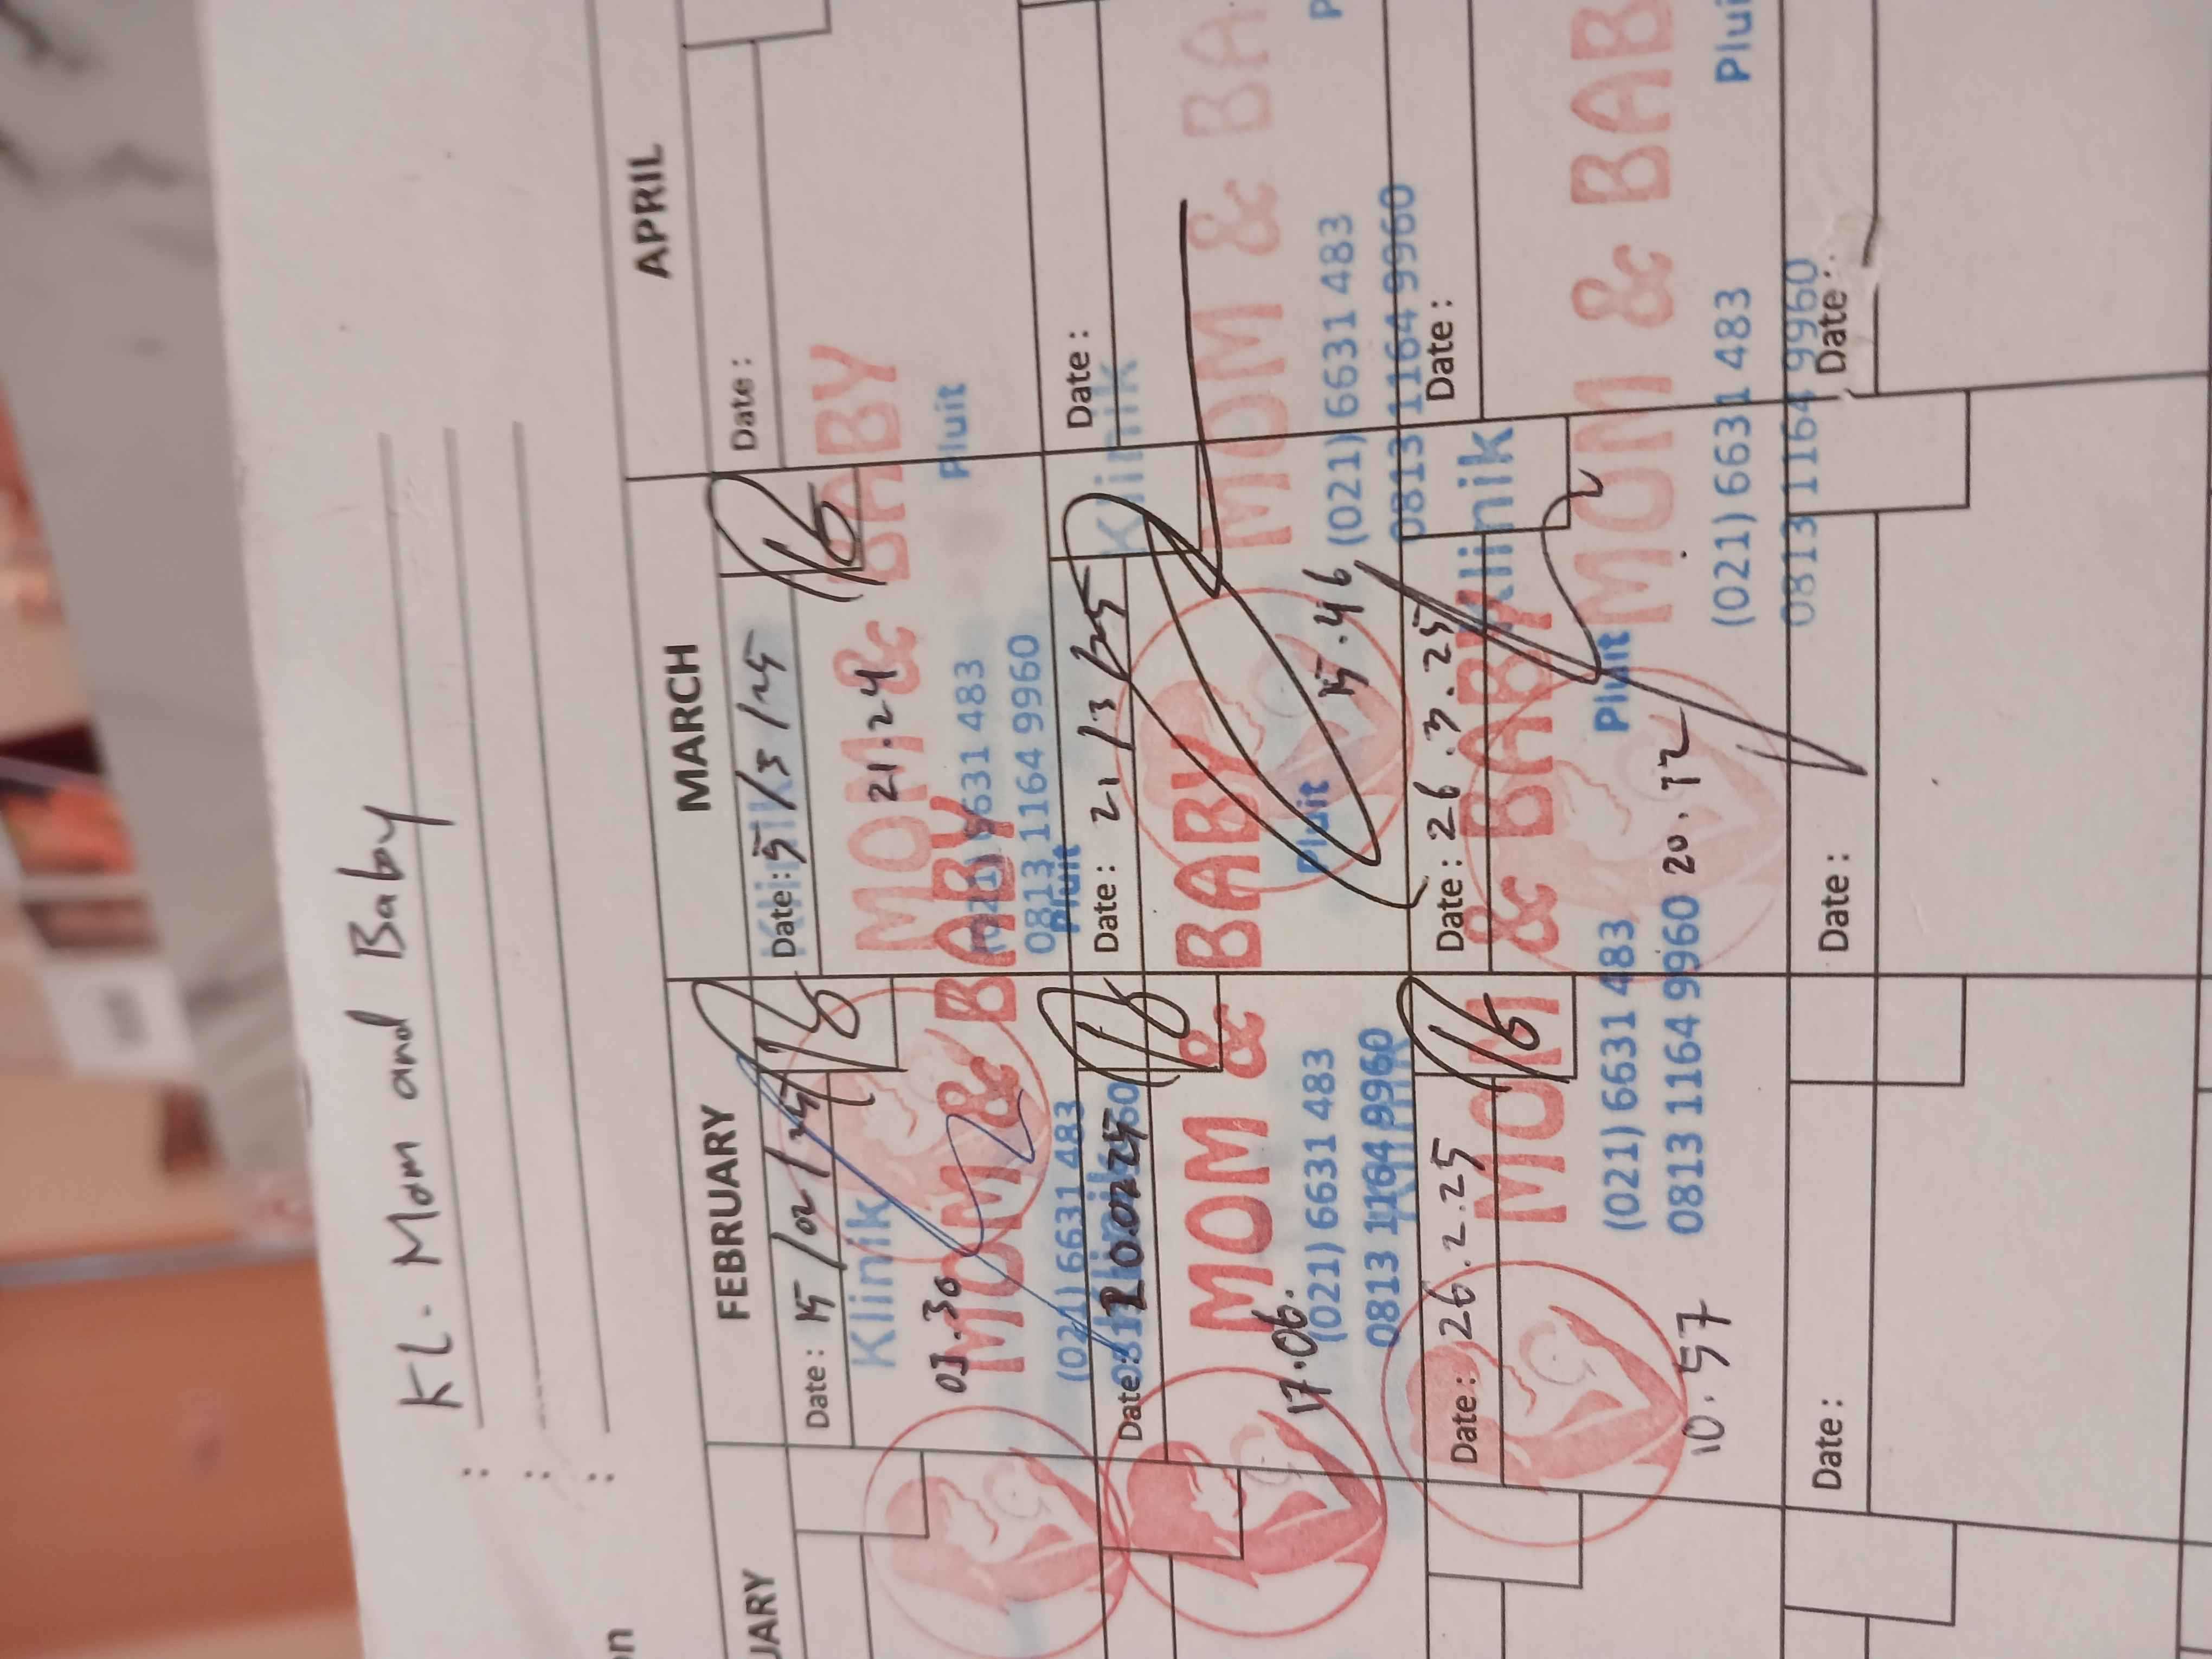 : KL. Mom and Baby
:
:
on
UARY
FEBRUARY
MARCH
APRIL
Date: 15/02/25
Klinik
MOM & BABY
Pluit
03.30
(021) 6631 483
Date: 5/3/25
Klinik
MOM & BABY
Pluit
21.24
(021) 6631 483
0813 1164 9960
Date:
Date: 20.02.25
Klinik
MOM & BABY
Pluit
17.06.
(021) 6631 483
0813 1164 9960
Date: 21/3/25
Klinik
MOM & BA
P
15.46
(021) 6631 483
0813 1164 9960
Date:
Date: 26.2.25
MOM & BABY
Pluit
(021) 6631 483
0813 1164 9960
10.57
Date: 26.3.25
Klinik
MOM & BAB
Plui
(021) 6631 483
0813 1164 9960
20.12
Date:
Date:
Date:
Date: